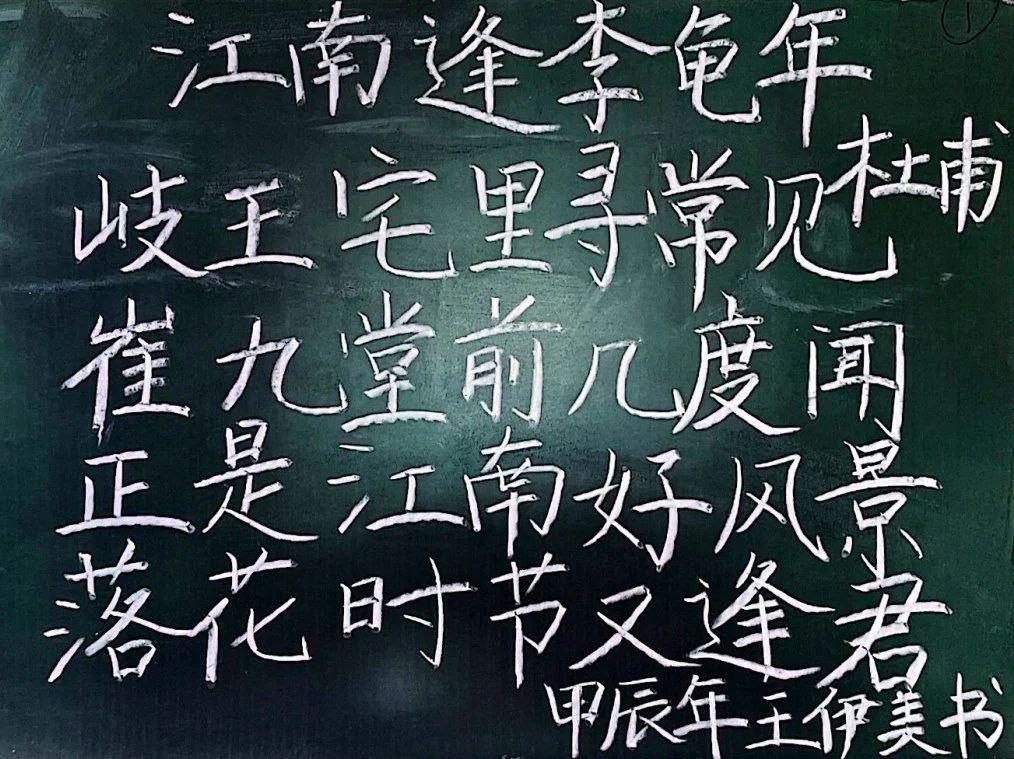 ①
江南逢李龟年
杜甫
岐王宅里寻常见
崔九堂前几度闻
正是江南好风景
落花时节又逢君
甲辰年王伊美书